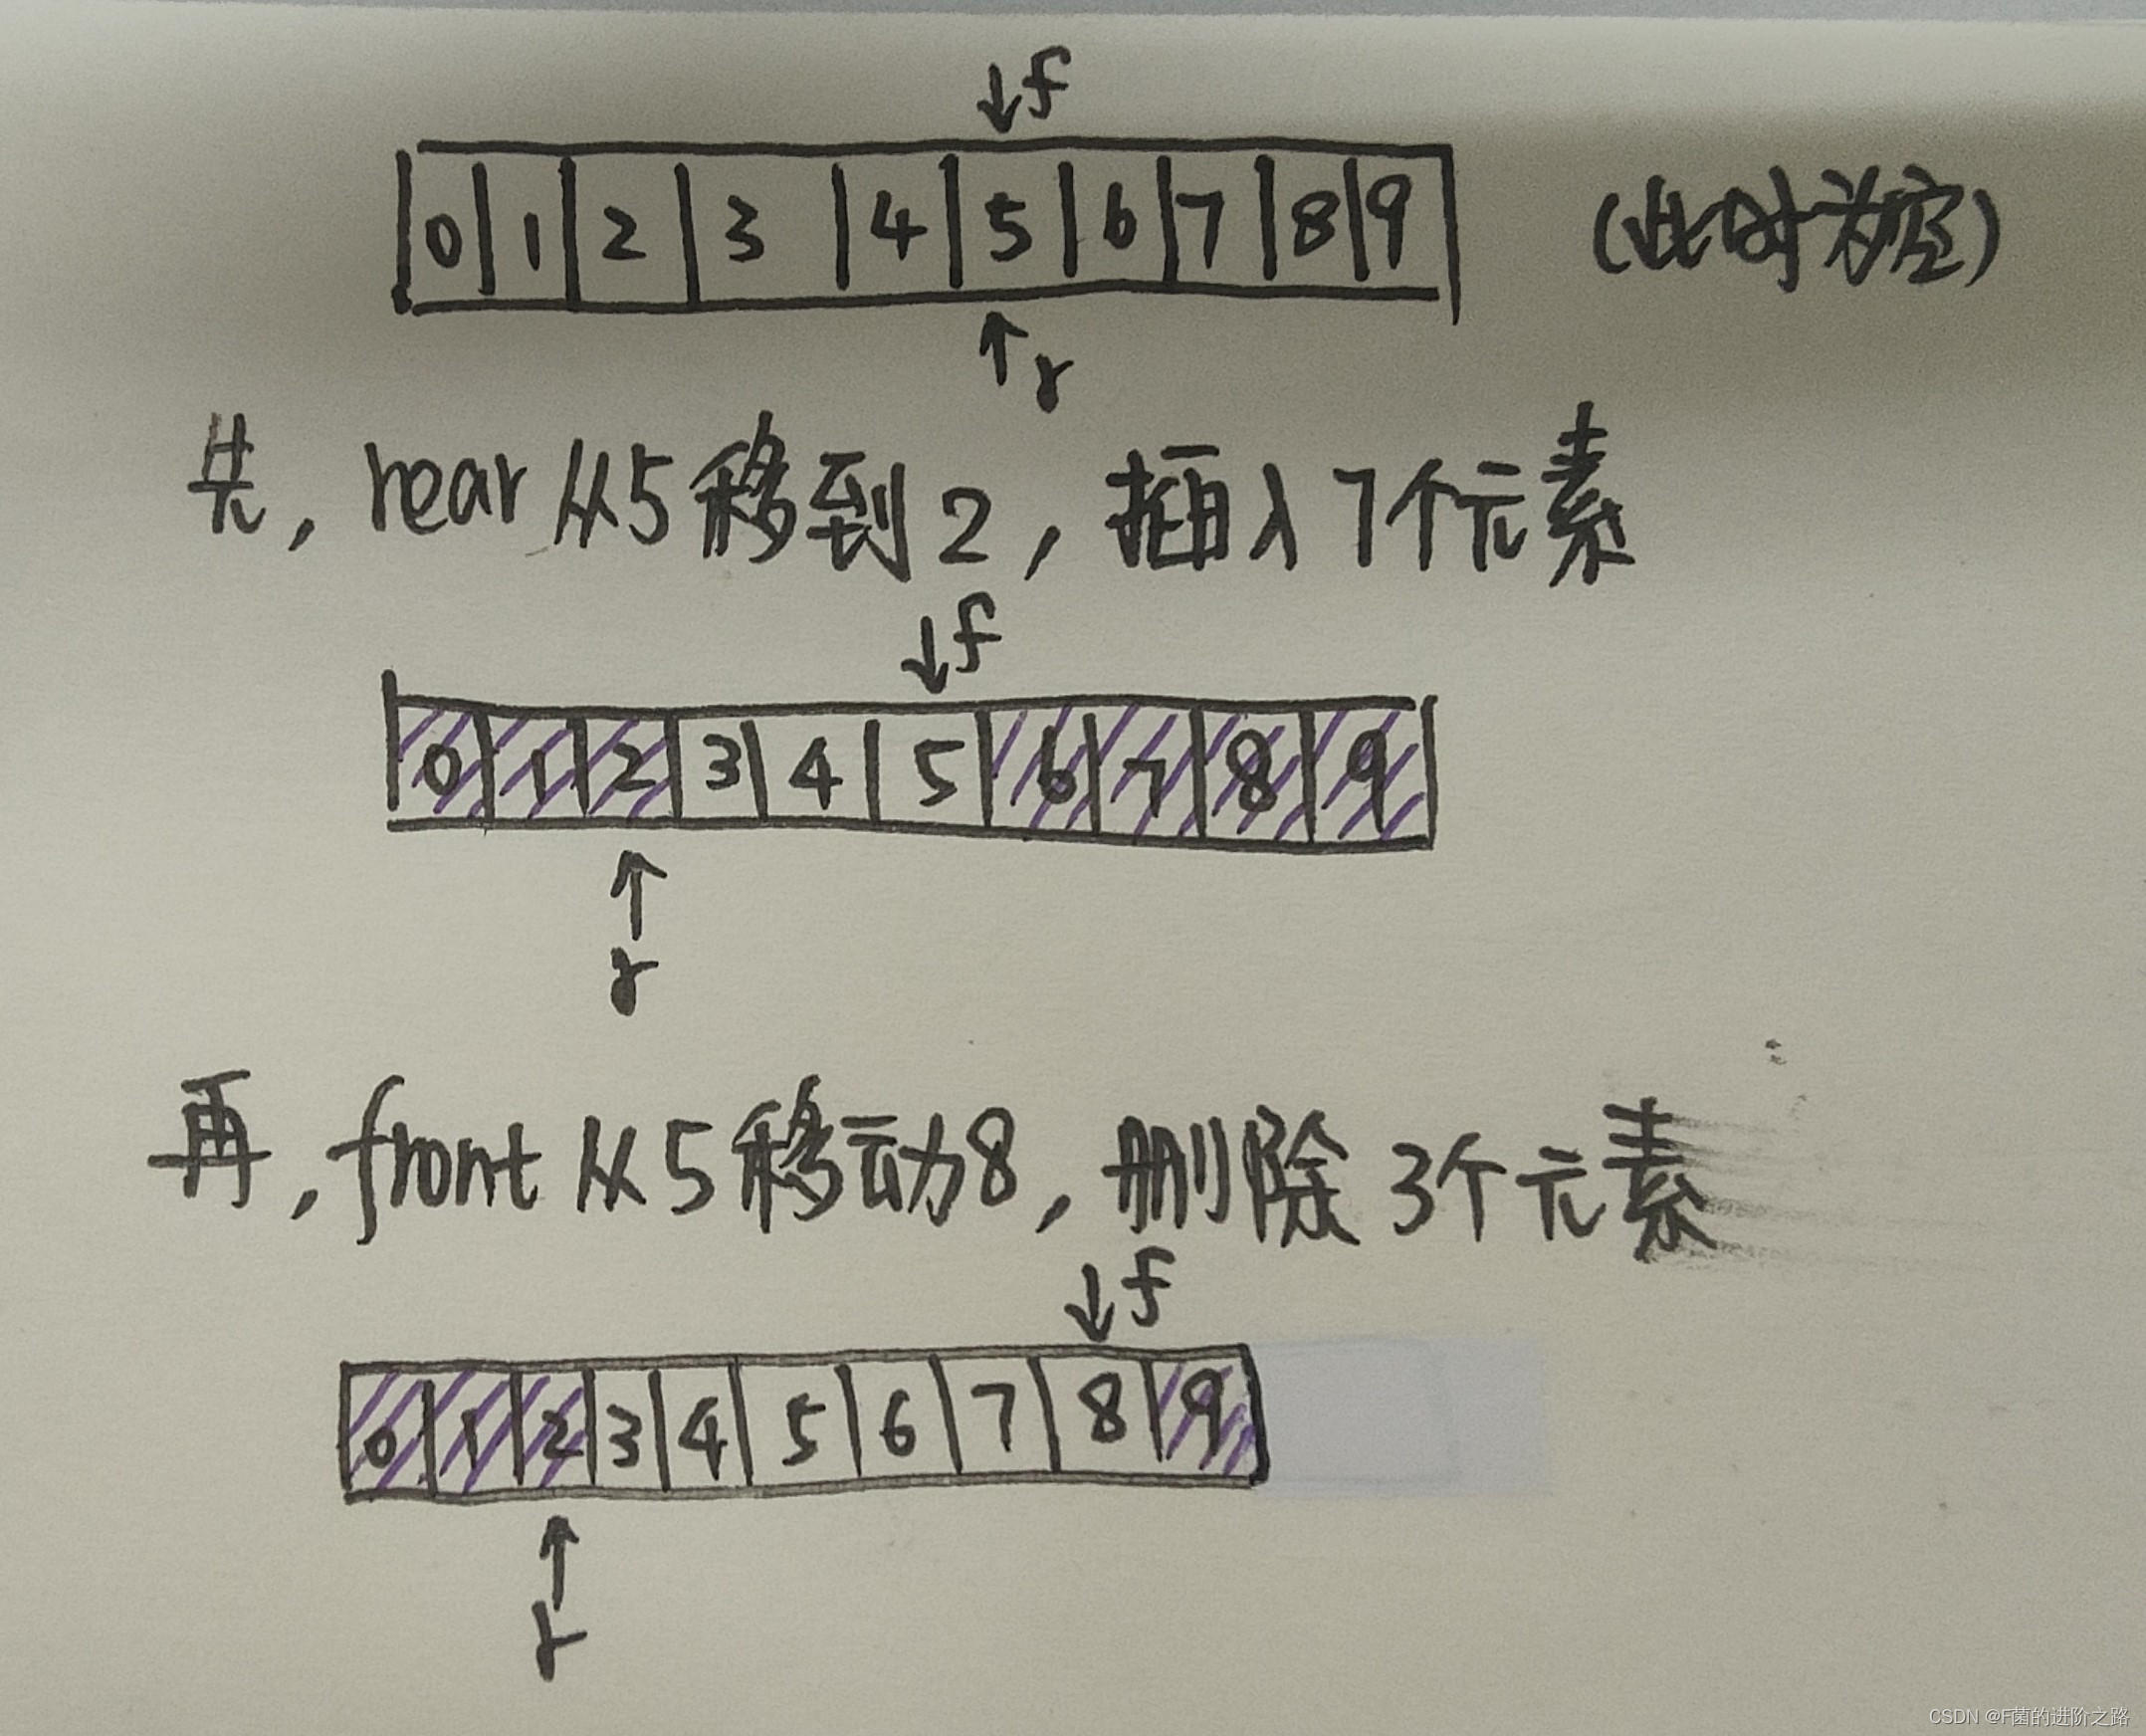 ↓f
0 1 2 3 4 5 6 7 8 9 (此时为空)
↑r
先, rear从5移到2, 插入7个元素
↓f
0 1 2 3 4 5 6 7 8 9
↑
r
再, front从5移动8, 删除3个元素
↓f
0 1 2 3 4 5 6 7 8 9
↑
r
CSDN @F菌的进阶之路